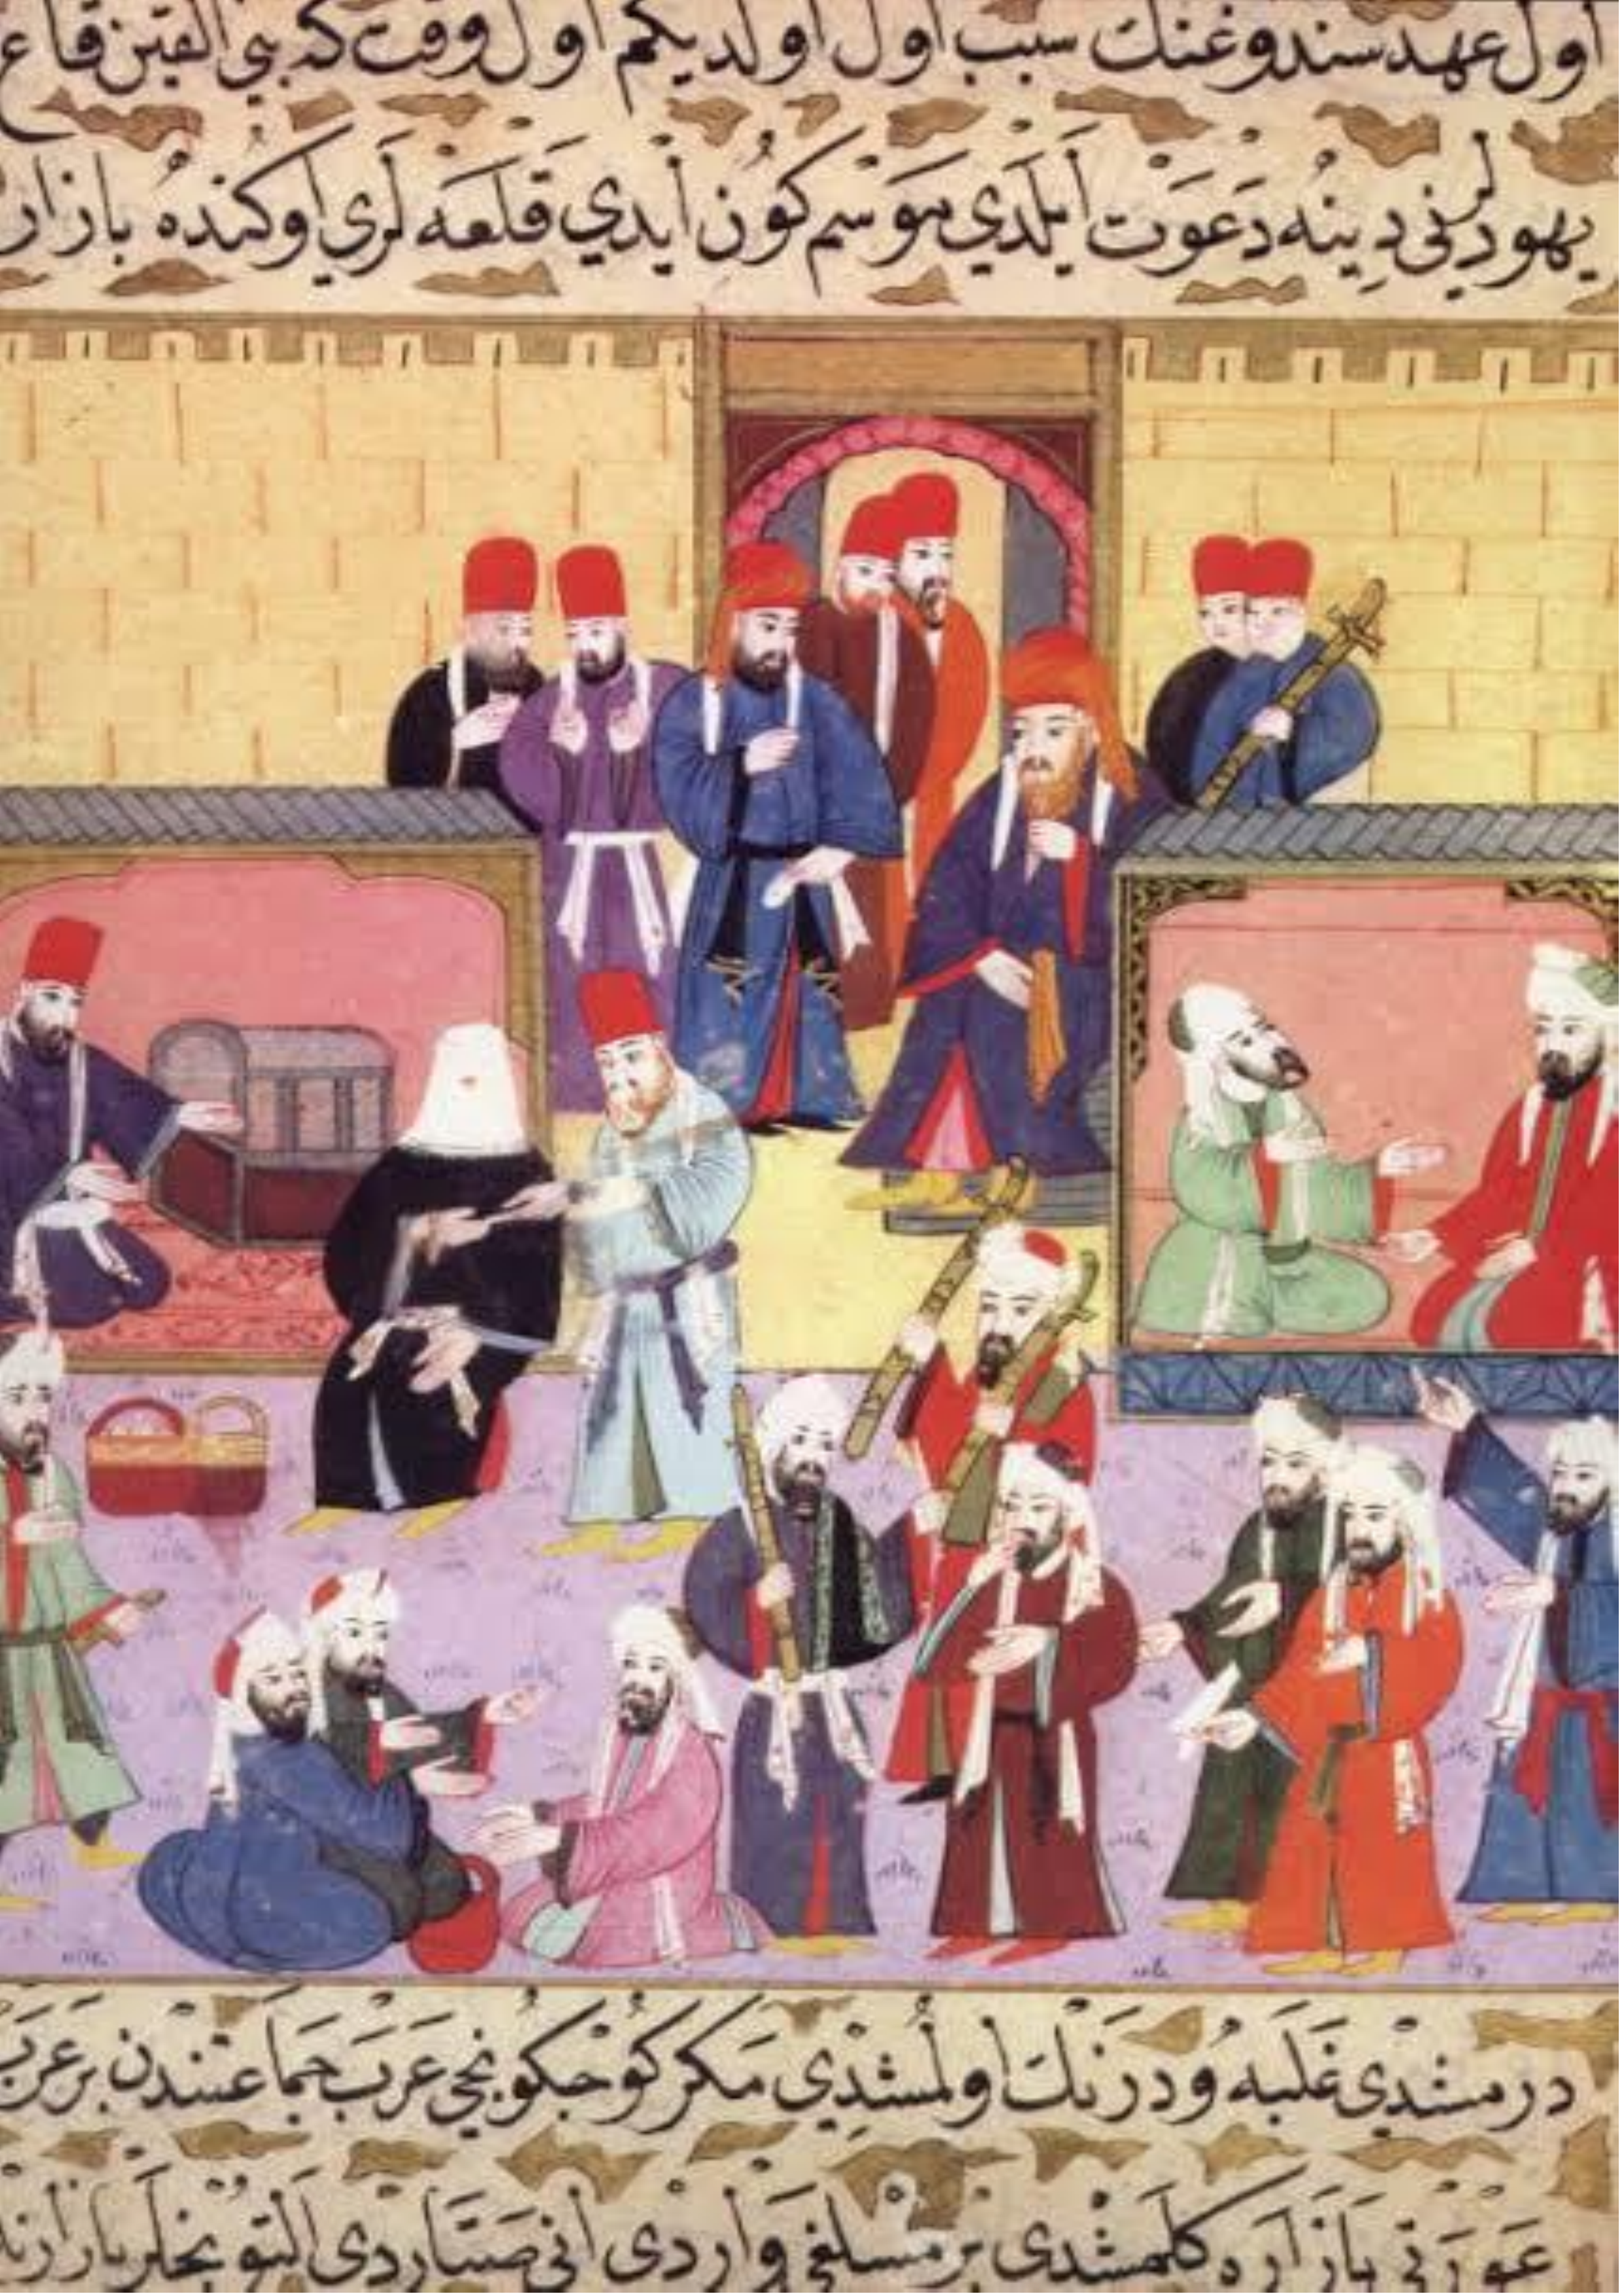 اول عهد سندوغنك سبب اول اولديكم اول وقت كه بني القينقاع
يهودلرني دينه دعوت ايلدي موسم كون ايدي قلعه لري اوكنده بازار
درمشدي غلبه و درنك اولمشدي مكر كوجكونجي عرب جماعتندن بر عرب
عورتي بازاره كلمشدي بر وار دى اني صتاردى التونجيلر بازارنده